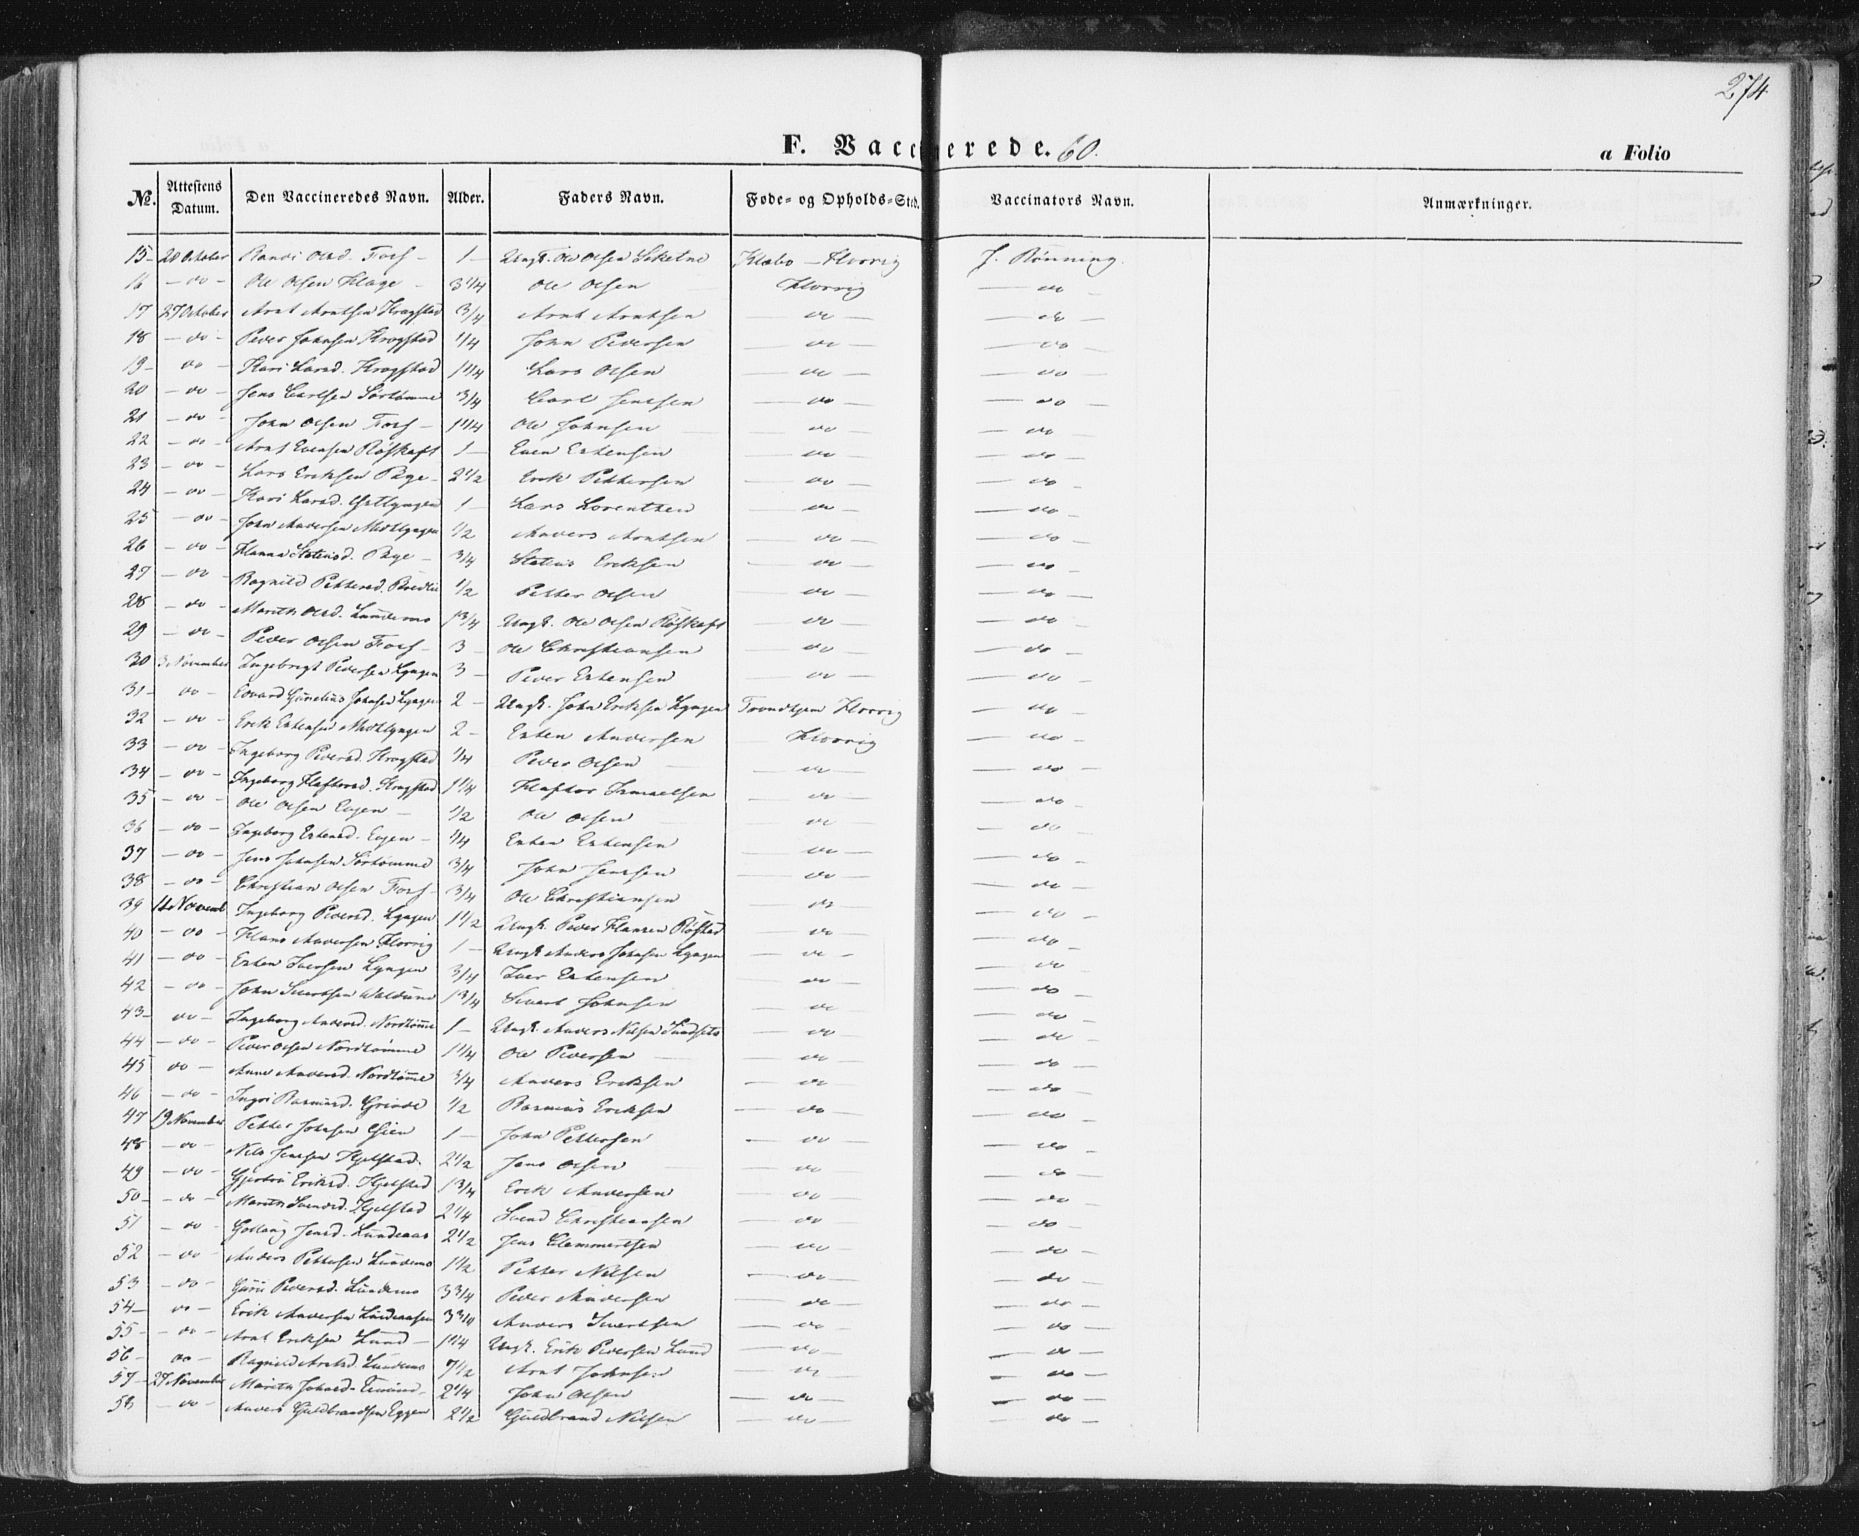 274
F. Vaccinerede. 60.
a Folio
No. Attestens Datum. Den Vaccineredes Navn. Alder. Faders Navn. Føde- og Opholds-Sted. Vaccinators Navn. Anmærkninger.
15 20 October Randi Olsd. Fors 1 Ungk. Ole Olsen Klæbo - Horrig J. Rønning.
16 - do - Ole Olsen Hage 3 1/4 Ole Olsen Horrig - do -
17 27 October Arnt Arntsen Krogstad 3/4 Arnt Arntsen - do - - do -
18 - do - Peder Johnsen Krogstad 1/4 John Pedersen - do - - do -
19 - do - Kari Larsd. Krogstad 1 1/4 Lars Olsen - do - - do -
20 - do - Jens Carlsen Sørtømme 3/4 Carl Jensen - do - - do -
21 - do - John Olsen Fors 1 1/4 Ole Johnsen - do - - do -
22 - do - Arnt Evensen Røfskaft 1 Even Estensen - do - - do -
23 - do - Lars Eriksen Rye 2 1/2 Erik Pettersen - do - - do -
24 - do - Kari Larsd. 1 Lars Lorentzen - do - - do -
25 - do - John Andersen Midtlyngen 1/2 Anders Arntsen - do - - do -
26 - do - Hanna Statiusd. Rye 3/4 Statius Eriksen - do - - do -
27 - do - Ragnild Pettersd. 1/2 Petter Olsen - do - - do -
28 - do - Marith Olsd. Lundemo 1 3/4 Ungk. Ole Olsen Røfskaft - do - - do -
29 - do - Peder Olsen Fors 3 Ole Christiansen - do - - do -
30 3 November Ingebrigt Pedersen Lyngen 3 Peder Estensen - do - - do -
31 - do - Edvard Johnsen Lyngen 2 Ungk. John Eriksen Lyngen Trondhjem Horrig - do -
32 - do - Erik Estensen Midtlyngen 2 Esten Andersen Horrig - do -
33 - do - Ingeborg Pedersd. Krogstad 1/4 Peder Olsen - do - - do -
34 - do - Ingeborg Haftorsd. Krogstad 1 1/4 Haftor Ismaelsen - do - - do -
35 - do - Ole Olsen Eugen 1/2 Ole Olsen - do - - do -
36 - do - Ingeborg Estensd. Eugen 1/4 Esten Estensen - do - - do -
37 - do - Jens Johnsen Sørtømme 3/4 John Jensen - do - - do -
38 - do - Christian Olsen Fors 3/4 Ole Christiansen - do - - do -
39 Novemb Ingeborg Pedersd. Lyngen 1 1/2 Ungk. Peder Hansen Røstad - do - - do -
40 - do - Hans Andersen Horrig 1 Ungk. Anders Johnsen Lyngen - do - - do -
41 - do - Esten Iversen Lyngen 3/4 Iver Estensen - do - - do -
42 - do - John Sivertsen 1 3/4 Sivert Johnsen - do - - do -
43 - do - Ingeborg Andersd. Nordtømme 1 Ungk. Anders Nilsen - do - - do -
44 - do - Peder Olsen Nordtømme 1 1/4 Ole Pedersen - do - - do -
45 - do - Anne Andersd. Nordtømme 3/4 Anders Eriksen - do - - do -
46 - do - Ingri Rasmusd. Grinde 1/2 Rasmus Eriksen - do - - do -
47 19 November Petter Johnsen 1 John Pettersen - do - - do -
48 - do - Nils Jensen Hjelstad 2 1/2 Jens Olsen - do - - do -
49 - do - Gjertru Eriksd. Hjelstad 1 3/4 Erik Andersen - do - - do -
50 - do - Marith Svendsd. Hjelstad 2 1/4 Svend Christiansen - do - - do -
51 - do - Jensd. Lundeaas 2 1/2 Jens Clemmetsen - do - - do -
52 - do - Anders Pettersen Lundemo 1 1/2 Petter Nilsen - do - - do -
53 - do - Guri Pedersd. Lundemo 3 3/4 Peder Andersen - do - - do -
54 - do - Erik Andersen Lundeaasen Anders Sivertsen - do - - do -
55 - do - Arnt Eriksen Lund 1 1/4 Ungk. Erik Pedersen Lund - do - - do -
56 - do - Ragnild Arntsd. Lundemo 7 1/2 Arnt Johnsen - do - - do -
57 27 November Marith Johnsd. 2 1/4 John Olsen - do - - do -
58 - do - Anders Guldbrandsen Eggen 2 1/2 Guldbrand Nilsen - do - - do -